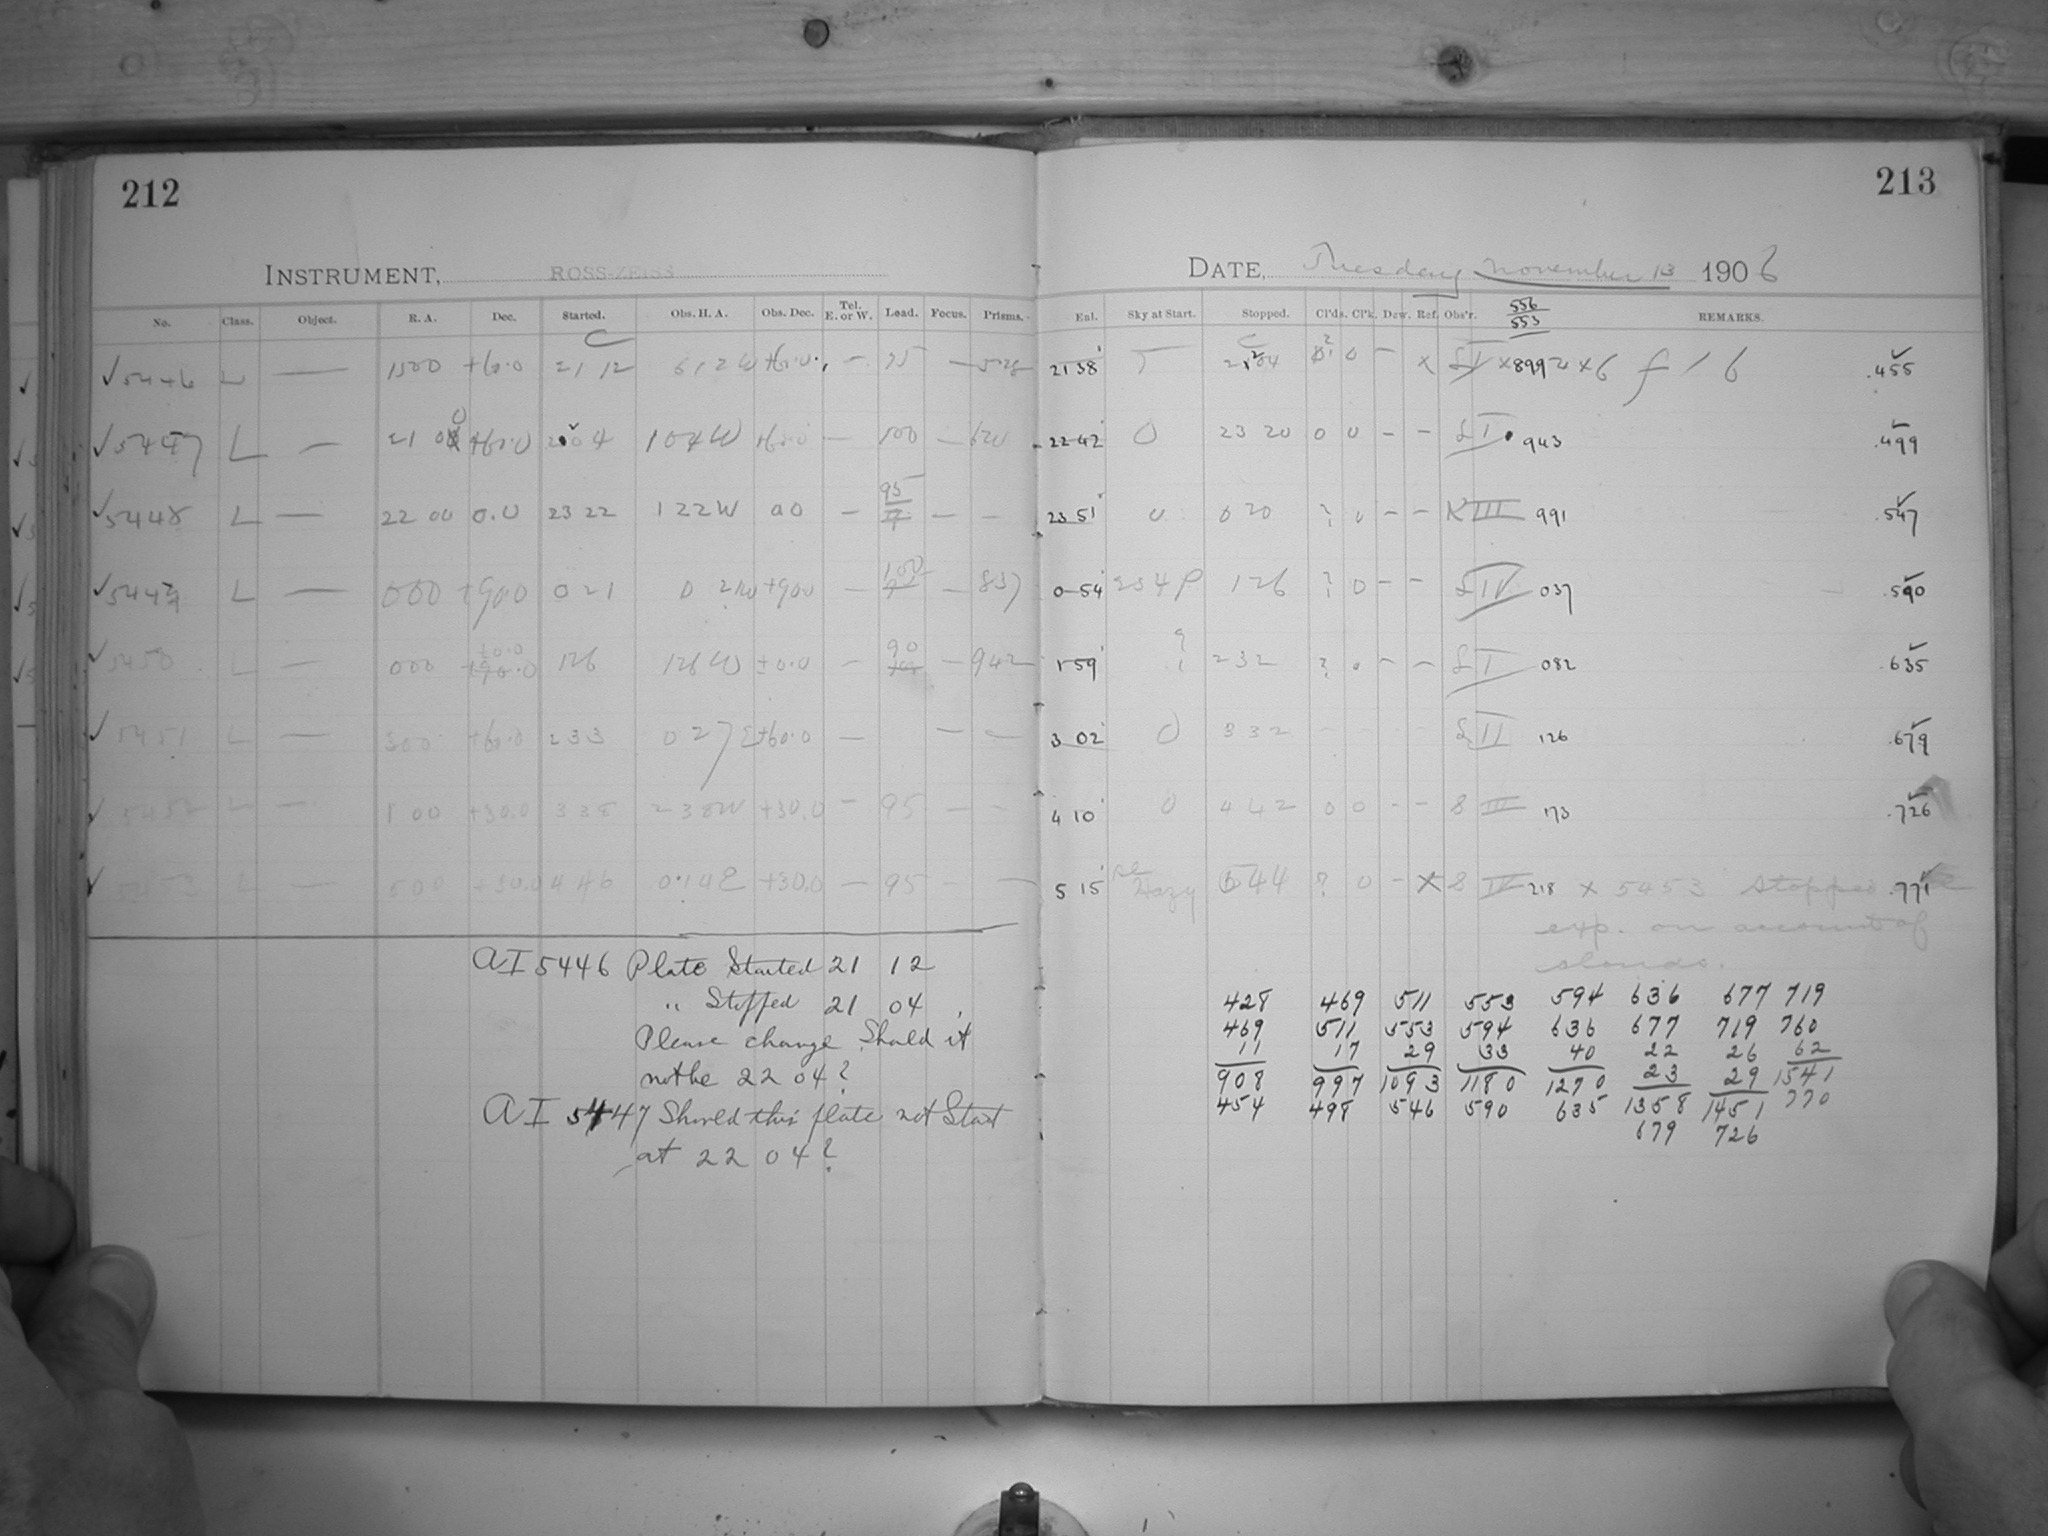 212
213
INSTRUMENT, ROSS-ZEISS
DATE, Tuesday November 13 1906
No. Class. Object. R. A. Dec. Started. Obs. H. A. Obs. Dec. Tel. E. or W. Lead. Focus. Prisms. Enl. Sky at Start. Stopped. Cl'ds. Cl'k. Dew. Ref. Obs'r. 556 553 REMARKS.
✓5446 L — 1500 +60.0 21 12 612W +60.0 — 75 — 21 38 2204 0 — x 899 f 16 .455
✓5447 L — 21 00 +60.0 2204 104W +60.0 — 100 — 22 42 0 23 20 0 0 – – I 943 .499
✓5448 L — 22 00 0.0 23 22 122W 00 — 95 — – 23 51 0 0 20 ? 0 – – III 991 .547
✓5449 L — 000 +900 0 21 0 +900 100 — 837 0 54 126 ? 0 – – IV 037 .590
✓5450 L 000 ±0.0 126 126W ±0.0 — 90 — 942 1 59 ? 232 ? 0 – – I 082 .635
✓5451 L — 300 +60.0 233 027E +60.0 — – – 3 02 0 332 II 126 .679
✓5452 L — 1 00 +30.0 338 238W +30.0 – 95 – – 4 10 0 442 0 0 – – 8 III 173 .726
✓5453 L — 500 +30.0 446 0.14E +30.0 — 95 – – 5 15 Hazy 544 ? 0 – x 8 IV 218 x 5453 Stopped .771
exp. on account of
clouds.
AI 5446 Plate Started 21 12
" Stopped 21 04
Please change. Should it
not be 22 04?
AI 5447 Should this plate not Start
at 22 04?
428 469 511 553 594 636 677 719
469 511 553 594 636 677 719 760
11 17 29 33 40 22 26 62
908 997 1093 1180 1270 23 29 1541
454 498 546 590 635 1358 1451 770
679 726